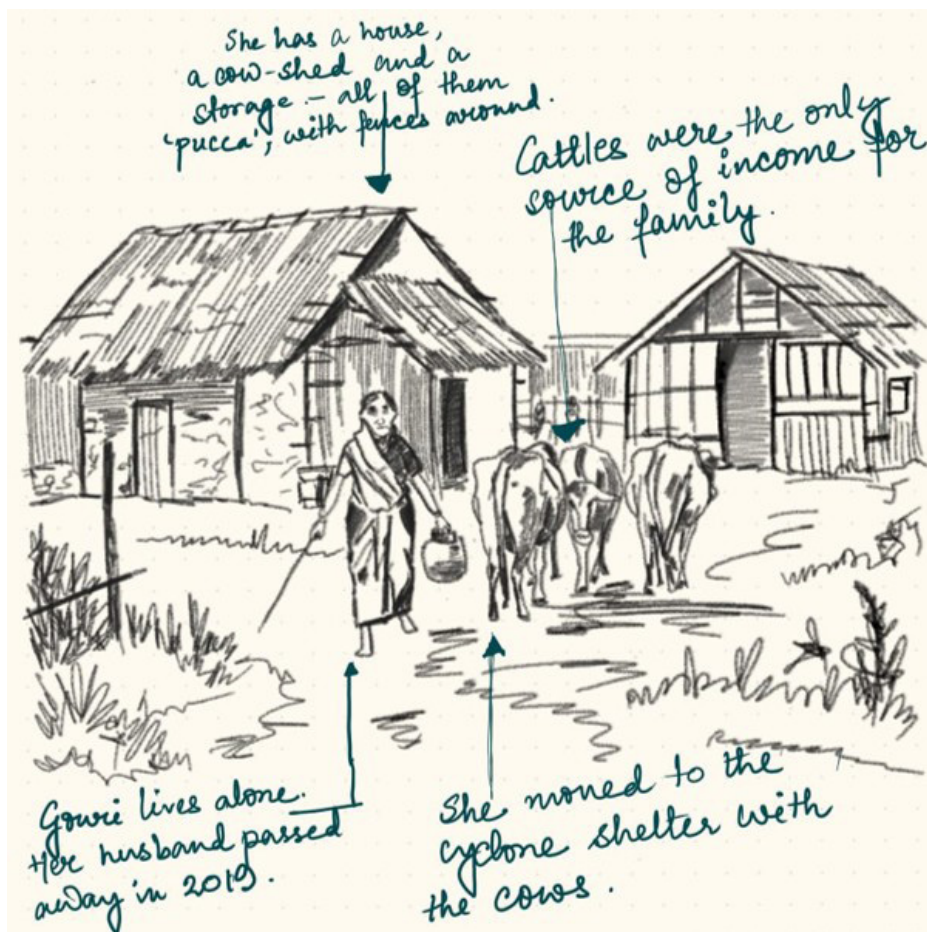 She has a house,
a cow-shed and a
storage - all of them
'pucca', with fences around.
Cattles were the only
source of income for
the family.
Gowri lives alone.
Her husband passed
away in 2019.
She moved to the
cyclone shelter with
the cows.